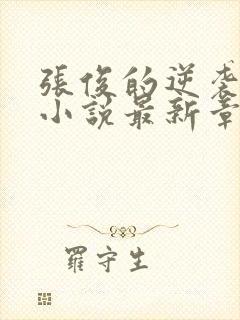 張俊的逆袭
小說最新章
羅守生